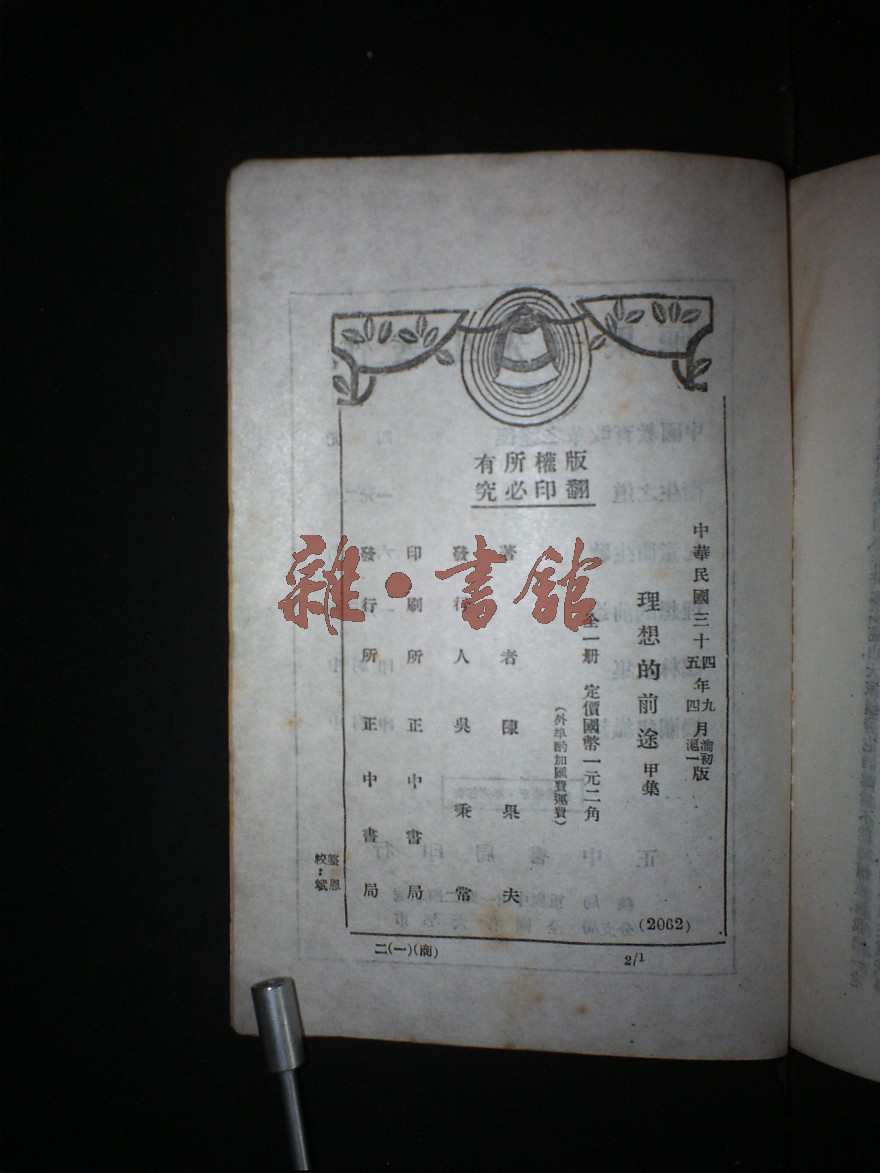 版權所有
翻印必究
中華民國三十四年九月渝初版
五年四月滬一版
理想的前途 甲集
全一册 定價國幣一元二角
(外埠酌加匯費運費)
著者 陳果夫
發行人 吳秉常
印刷所 正中書局
發行所 正中書局
校:
(2062)
二(一)(商)
2/1
雜·書館